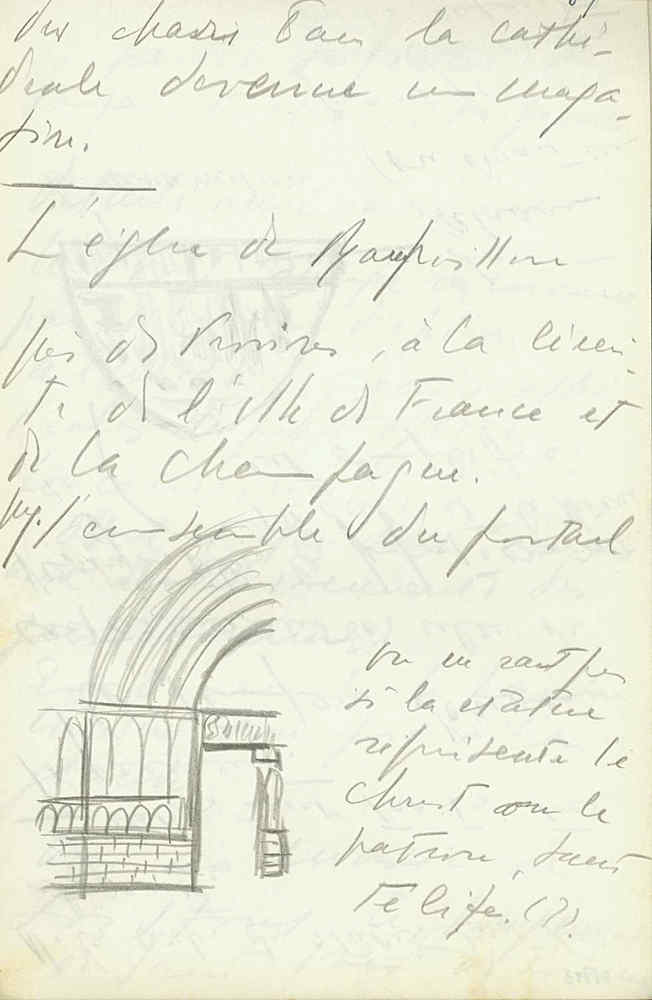 des chaises dans la cathé-
drale devenue un maga-
sin.
L'église de
près de Provins, à la limi-
te de l'île de France et
de la champagne.
l'ensemble du portail
on ne sait pas
si la statue
représente le
Christ ou le
patron, saint
Félife. (?).